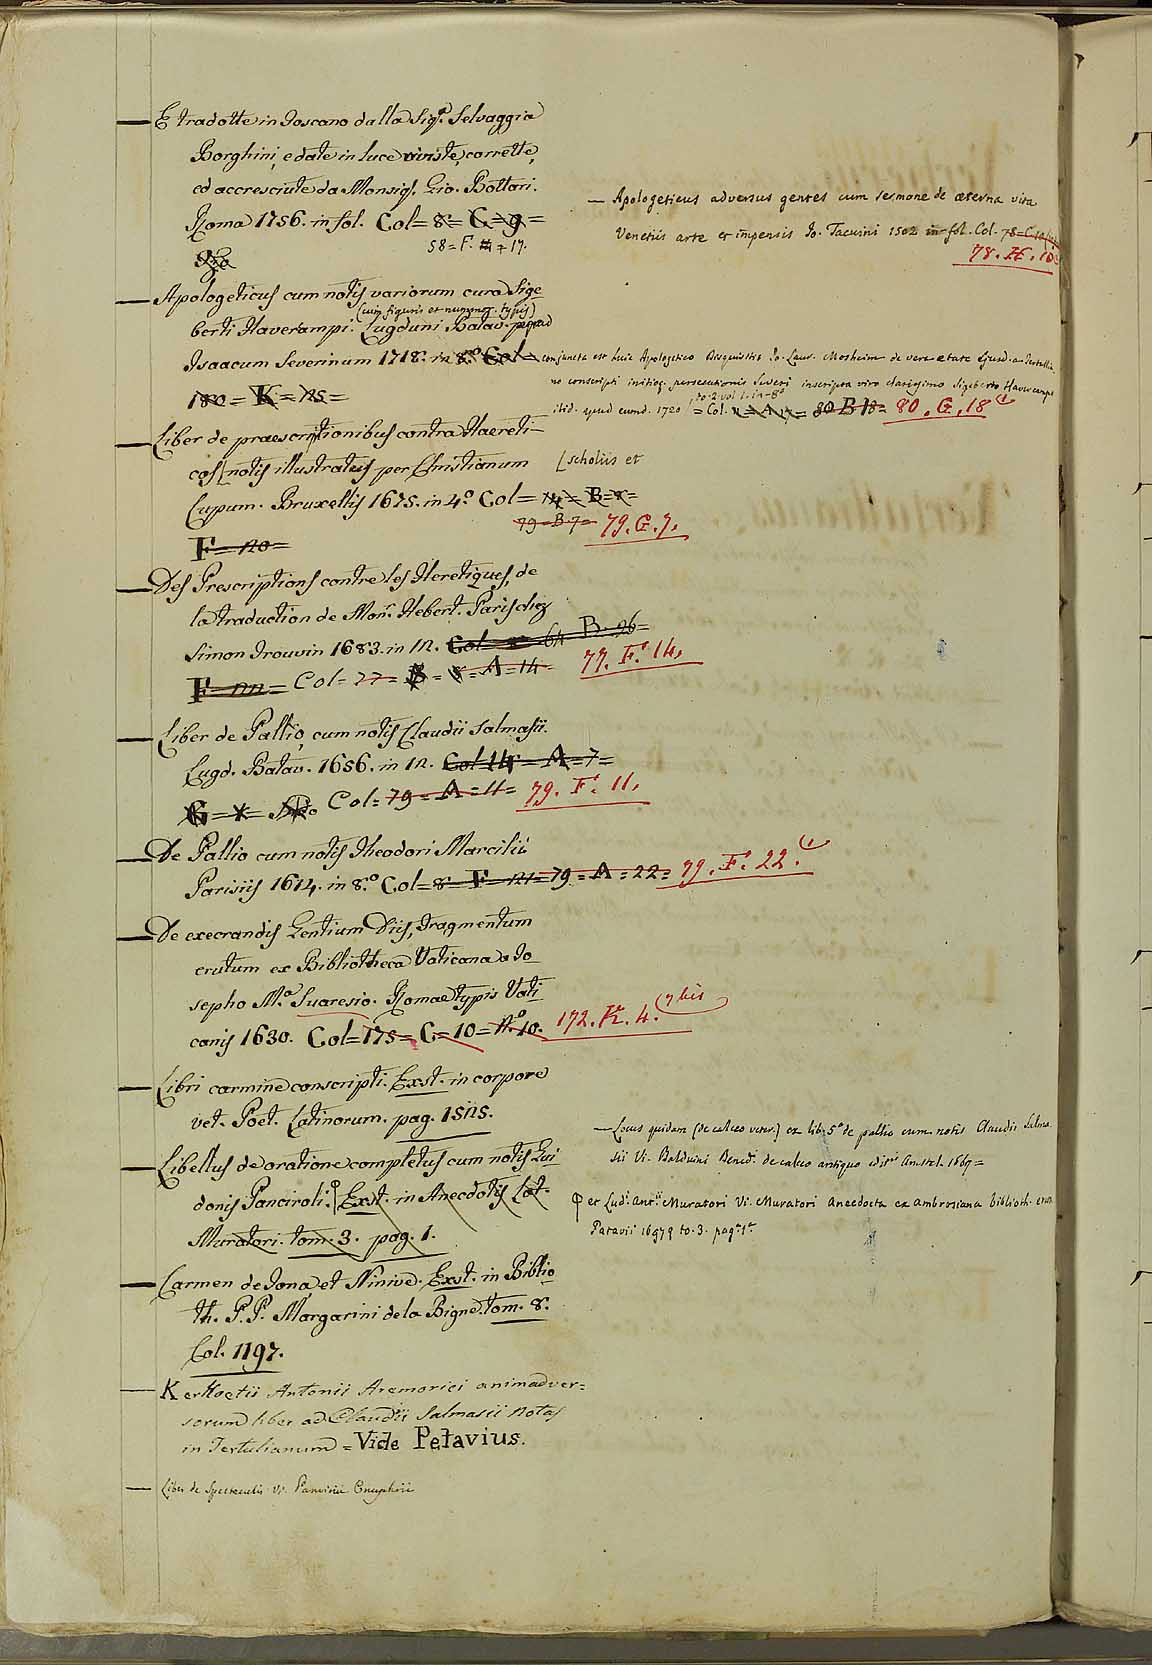 E tradotte in Toscano dalla Sigª. Selvaggia
Borghini, e date in luce riviste, corrette,
ed accresciute da Monsigr. Gio. Bottari.
Roma 1756. in fol. Col= 8= C= 9=
58= F. 17.
— Apologeticus adversus gentes cum sermone de æterna vita
Venetiis arte et impensis Jo. Tacuini 1502 in fol. Col. 78= C.
78. H. 10
Apologeticus cum notis variorum cura Sige
(cum figuris et numismat. typis)
berti Haverampi. Lugduni Batav. apud
Isaacum Severinum 1718. in 8.º Col=
180= K= 125=
conjuncta est huic Apologetico Disquisitio Jo. Laur. Mosheim de vera etate ejusd. a Tertullia-
no conscripti initioq. persecutionis Severi inscripta viro clarissimo Sigeberto Havercampo
to. 2 vol. 1. in-8º
ibid. apud eumd. 1720 = Col. 80 B 18= 80. G. 18
Liber de praescriptionibus contra Haereti-
cos [notis illustratus per Christianum
[scholiis et
Lupum. Bruxellis 1675. in 4º. Col= 14= B= 8=
79= B 7= 79. G. 7.
F= 120=
Des Prescriptions contre les Heretiques, de
la traduction de Monr. Hebert. Paris chez
Simon Trouvin 1683. in 12. Col= 64 B. 26=
F= 122= Col= 77= B= 8= A= 14= 77. F. 14.
Liber de Pallio, cum notis Claudii Salmasii.
Lugd. Batav. 1656. in 12. Col 14= A= 7=
Col= 79= A= 11= 79. F. 11.
De Pallio cum notis Theodori Marcilii
Parisiis 1614. in 8.º Col= 8= F= 121= 79= A= 22= 79. F. 22.
De execrandis Gentium Diis, Fragmentum
erutum ex Bibliotheca Vaticana a Jo
sepho M.ª Suaresio. Romae typis Vati
canis 1630. Col= 175= C= 10= N.º 10. 172. K. 4. 7 bis
Libri carmine conscripti. Exst. in corpore
vet. Poet. Latinorum. pag. 1525.
— Locus quidam (de calceo veter.) ex lib. 5º de pallio cum notis Claudii Salma
sii Vi. Balduini Bened. de calceo antiquo edit. Amstel. 1667=
Libellus de oratione completus cum notis Gui
donis Panciroli. Φ Exst. in Anecdotis Lat.
Muratori. tom. 3. pag. 1.
Φ et Lud. Ant. Muratori Vi. Muratori Anecdota ex Ambrosiana biblioth.
Patavii to. 3. pag. 1ª
Carmen de Jona, et Ninive. Exst. in Biblio
th. P. P. Margarini de la Bigne. tom. 8.
Col. 1197.
Kerkoetii Antonii Aremorici animadver=
sorum liber ad Claudii Salmasii notas
in Tertulianum= Vide Petavius.
— Liber de Spectaculis Vi. Panvinii Onuphrii